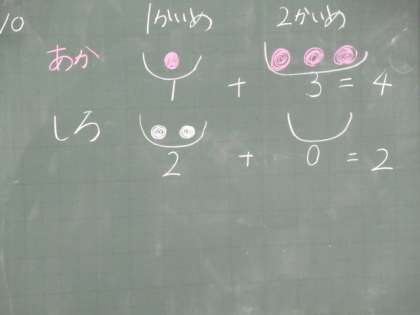 10
1かいめ 2かいめ
あか
1 + 3 = 4
しろ
2 + 0 = 2